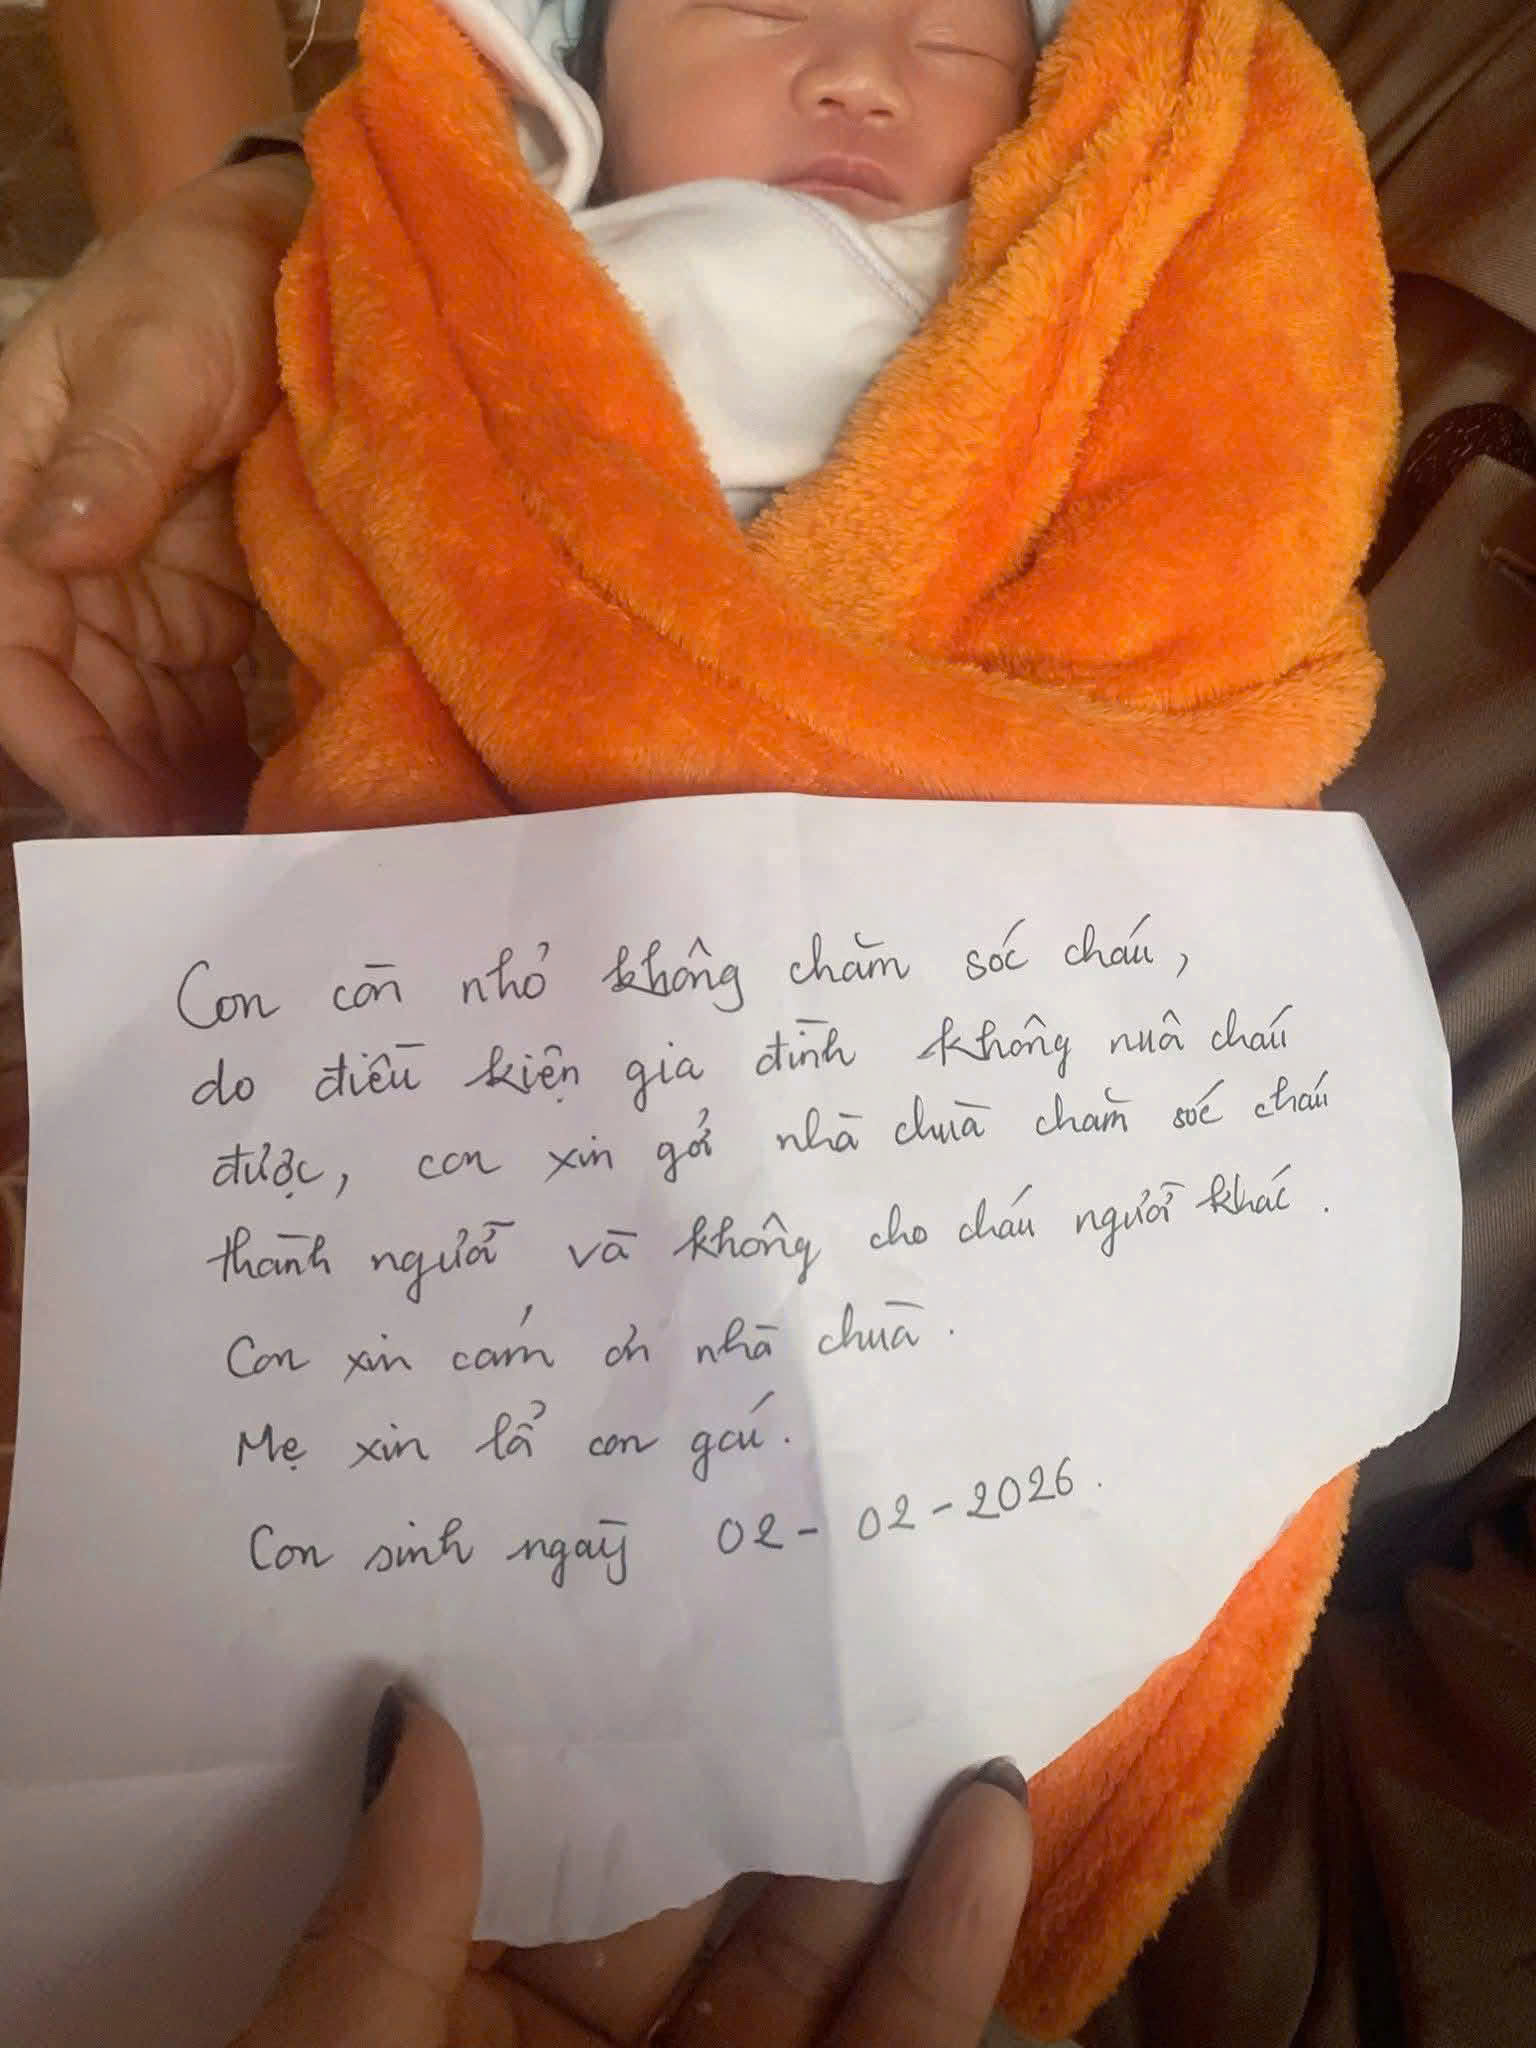 Con còn nhỏ không chăm sóc cháu,
do điều kiện gia đình không nuô cháu
được, con xin gởi nhà chùa chăm sóc cháu
thành người và không cho cháu người khác.
Con xin cám ơn nhà chùa.
Mẹ xin lỗ con gái.
Con sinh ngày 02-02-2026.